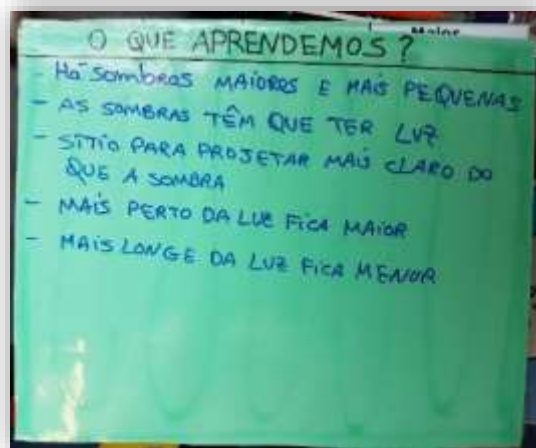 Maior
O QUE APRENDEMOS?
- Há sombras MAIORES E MAIS PEQUENAS
- AS SOMBRAS TÊM QUE TER LUZ
- SÍTIO PARA PROJETAR MAIS CLARO DO
QUE A SOMBRA
- MAIS PERTO DA LUZ FICA MAIOR
- MAIS LONGE DA LUZ FICA MENOR